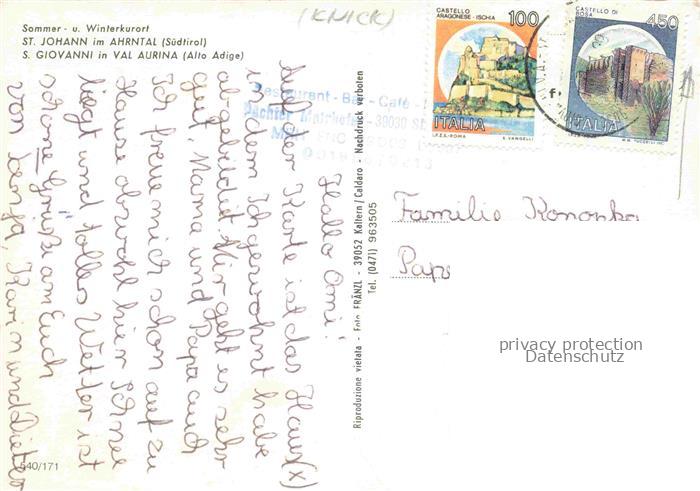 (KNICK)
Sommer - u. Winterkurort
ST. JOHANN im AHRNTAL (Südtirol)
S. GIOVANNI in VAL AURINA (Alto Adige)
CASTELLO
ARAGONESE - ISCHIA
100
ITALIA
I.P.Z.S. - ROMA
E. VANGELLI
CASTELLO DI
BOSA
450
ITALIA
Restaurant - Bar - Café
Pächter Mairhofer - 39030
Hallo Omi!
Auf der Karte ist das Haus (x)
in dem Ich gewohnt habe
abgebildet. Mir geht es sehr
gut, Mama und Papa auch
Ich freue mich schon auf zu
Hause obwohl hier Schnee
liegt und tolles Wetter ist
schöne Grüße am Euch
von Sonja, Karin und Dieter
Riproduzione vietata - Foto FRÄNZL - 39052 Kaltern / Caldaro - Nachdruck verboten
Tel. (0471) 963505
Familie Konopka
Paps
privacy protection
Datenschutz
540/171